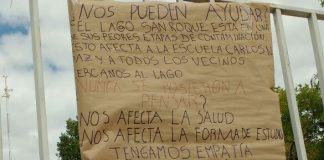 ¿NOS PUEDEN AYUDAR?
EL LAGO SAN ROQUE ESTA EN UNA
SUS PEORES ETAPAS DE CONTAMINACIÓN
ESTO AFECTA A LA ESCUELA CARLOS N
PAZ Y A TODOS LOS VECINOS
CERCANOS AL LAGO
NUNCA SE PUSIERON A
PENSAR?
NOS AFECTA LA SALUD
NOS AFECTA LA FORMA DE ESTUDI
TENGAMOS EMPATÍA